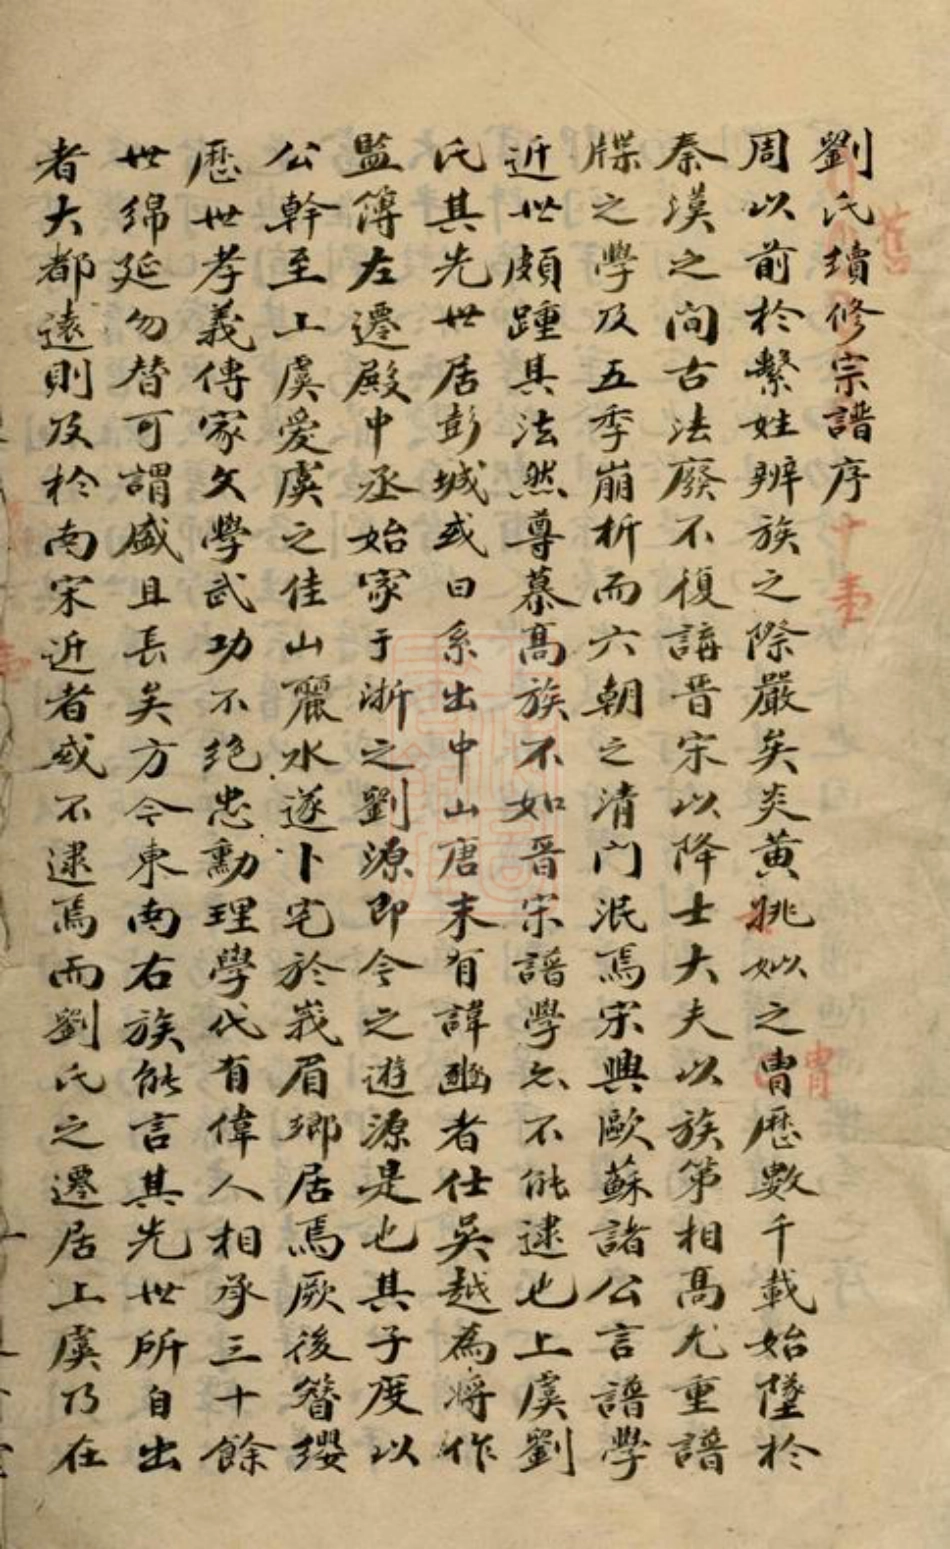 劉氏續修宗譜序
周以前於繫姓辨族之際嚴矣炎黃姚姒之胄歷數千載始墜於
秦漢之間古法廢不復講晋宋以降士大夫以族第相高尤重譜
牒之學及五季崩析而六朝之清門泯焉宋興歐蘇諸公言譜學
近世頗踵其法然尊慕高族不如晋宋譜學亦不能逮也上虞劉
氏其先世居彭城或曰系出中山唐末有諱豳者仕吳越為將作
監簿左遷殿中丞始家于浙之劉源即今之遊源是也其子度以
公幹至上虞愛虞之佳山麗水遂卜宅於峩眉鄉居焉厥後簪纓
歷世孝義傳家文學武功不絕忠勳理學代有偉人相承三十餘
世綿延勿替可謂盛且長矣方今東南右族能言其先世所自出
者大都遠則及於南宋近者或不逮焉而劉氏之遷居上虞乃在
舊
十 
胄